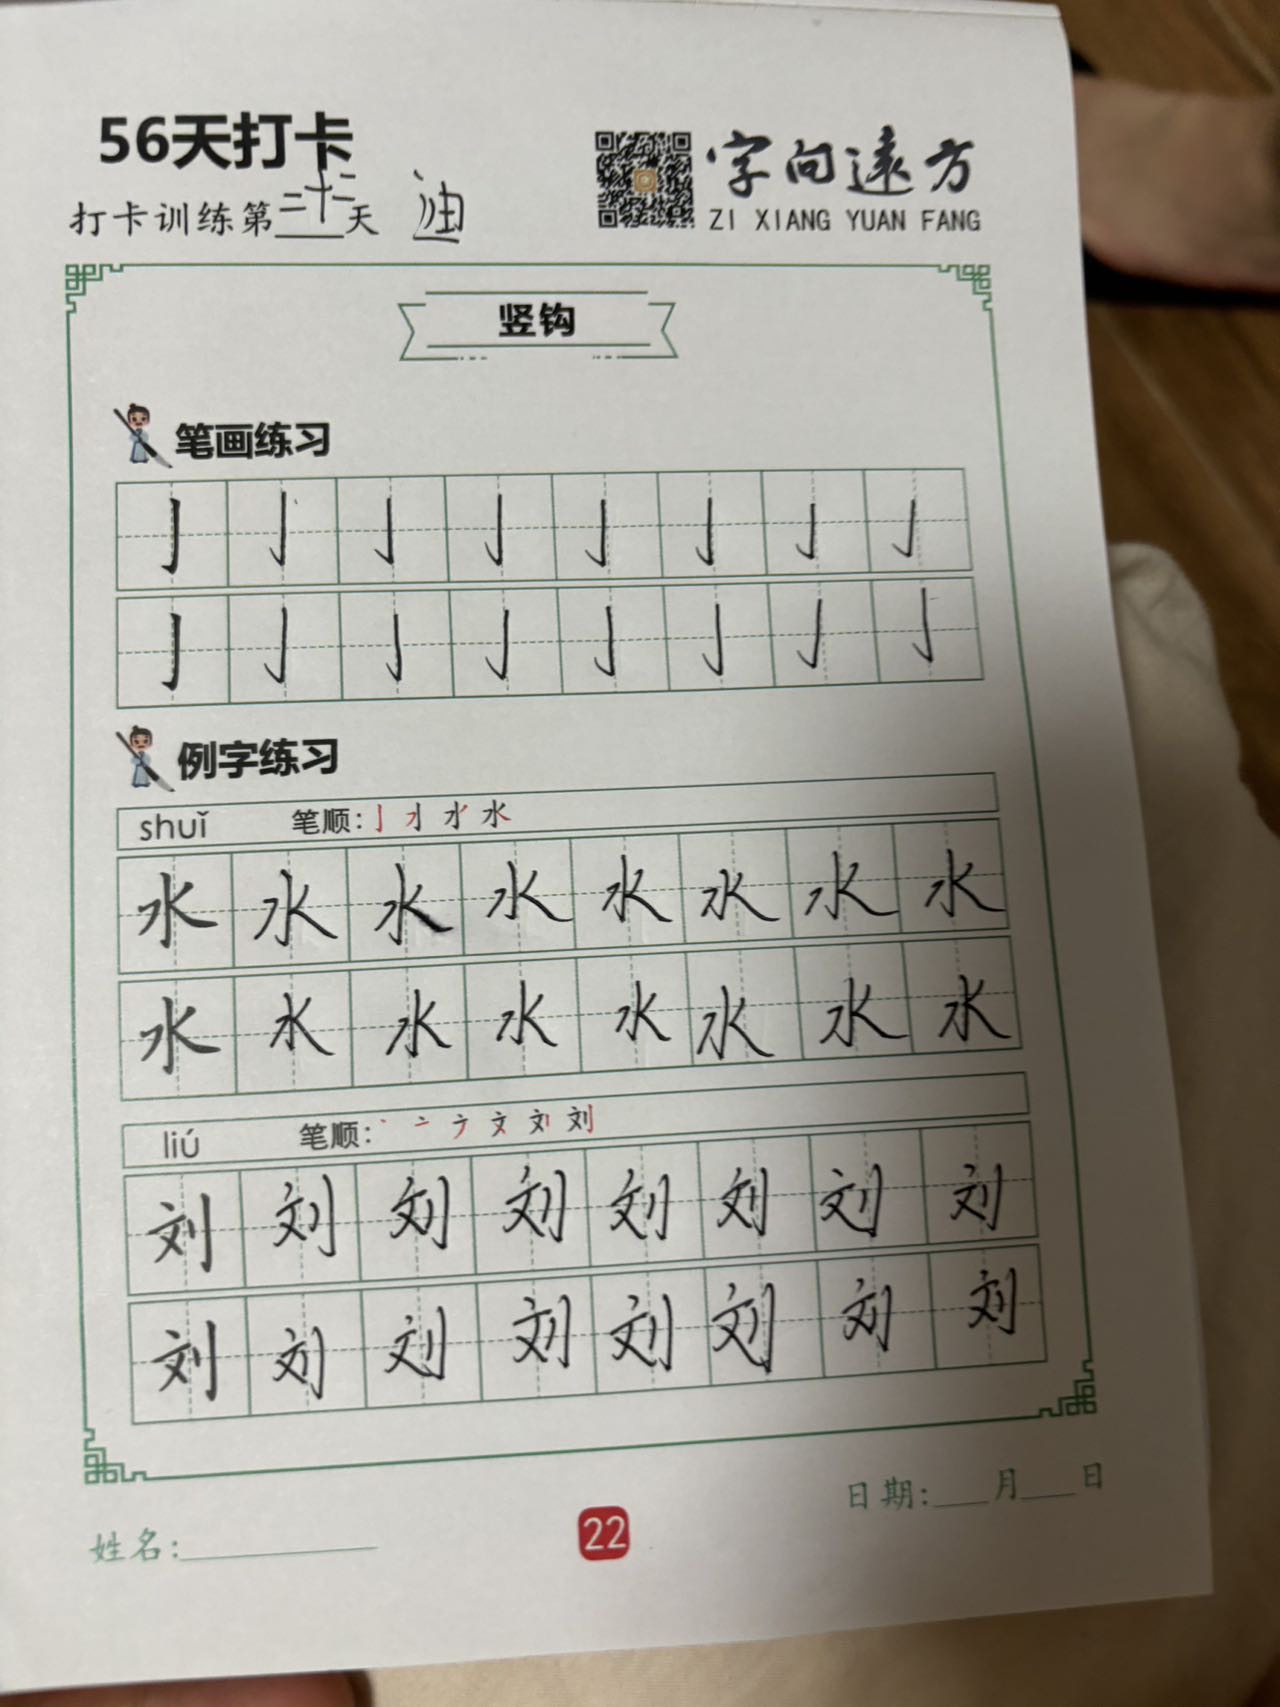 56天打卡
字向远方
ZI XIANG YUAN FANG
打卡训练第二十二天 油
竖钩
笔画练习
亅亅亅亅亅亅亅亅
亅亅亅亅亅亅亅亅
例字练习
shuǐ 笔顺：
水水水水水水水水
水水水水水水水水
liú 笔顺：
刘刘刘刘刘刘刘刘
刘刘刘刘刘刘刘刘
日期：___月___日
姓名：
22